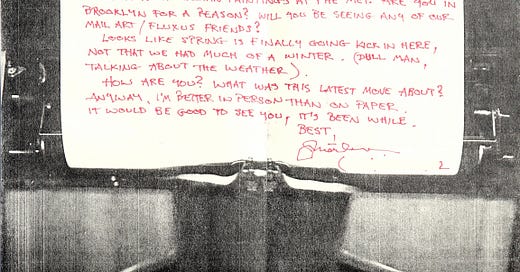 PAINTINGS AT THE MET. ARE YOU IN
BROOKLYN FOR A REASON? WILL YOU BE SEEING ANY OF OUR
MAIL ART/FLUXUS FRIENDS?
LOOKS LIKE SPRING IS FINALLY GOING KICK IN HERE,
NOT THAT WE HAD MUCH OF A WINTER. (DULL MAN,
TALKING ABOUT THE WEATHER).
HOW ARE YOU? WHAT WAS THIS LATEST MOVE ABOUT?
ANYWAY, I'M BETTER IN PERSON THAN ON PAPER.
IT WOULD BE GOOD TO SEE YOU, IT'S BEEN WHILE.
BEST,
2